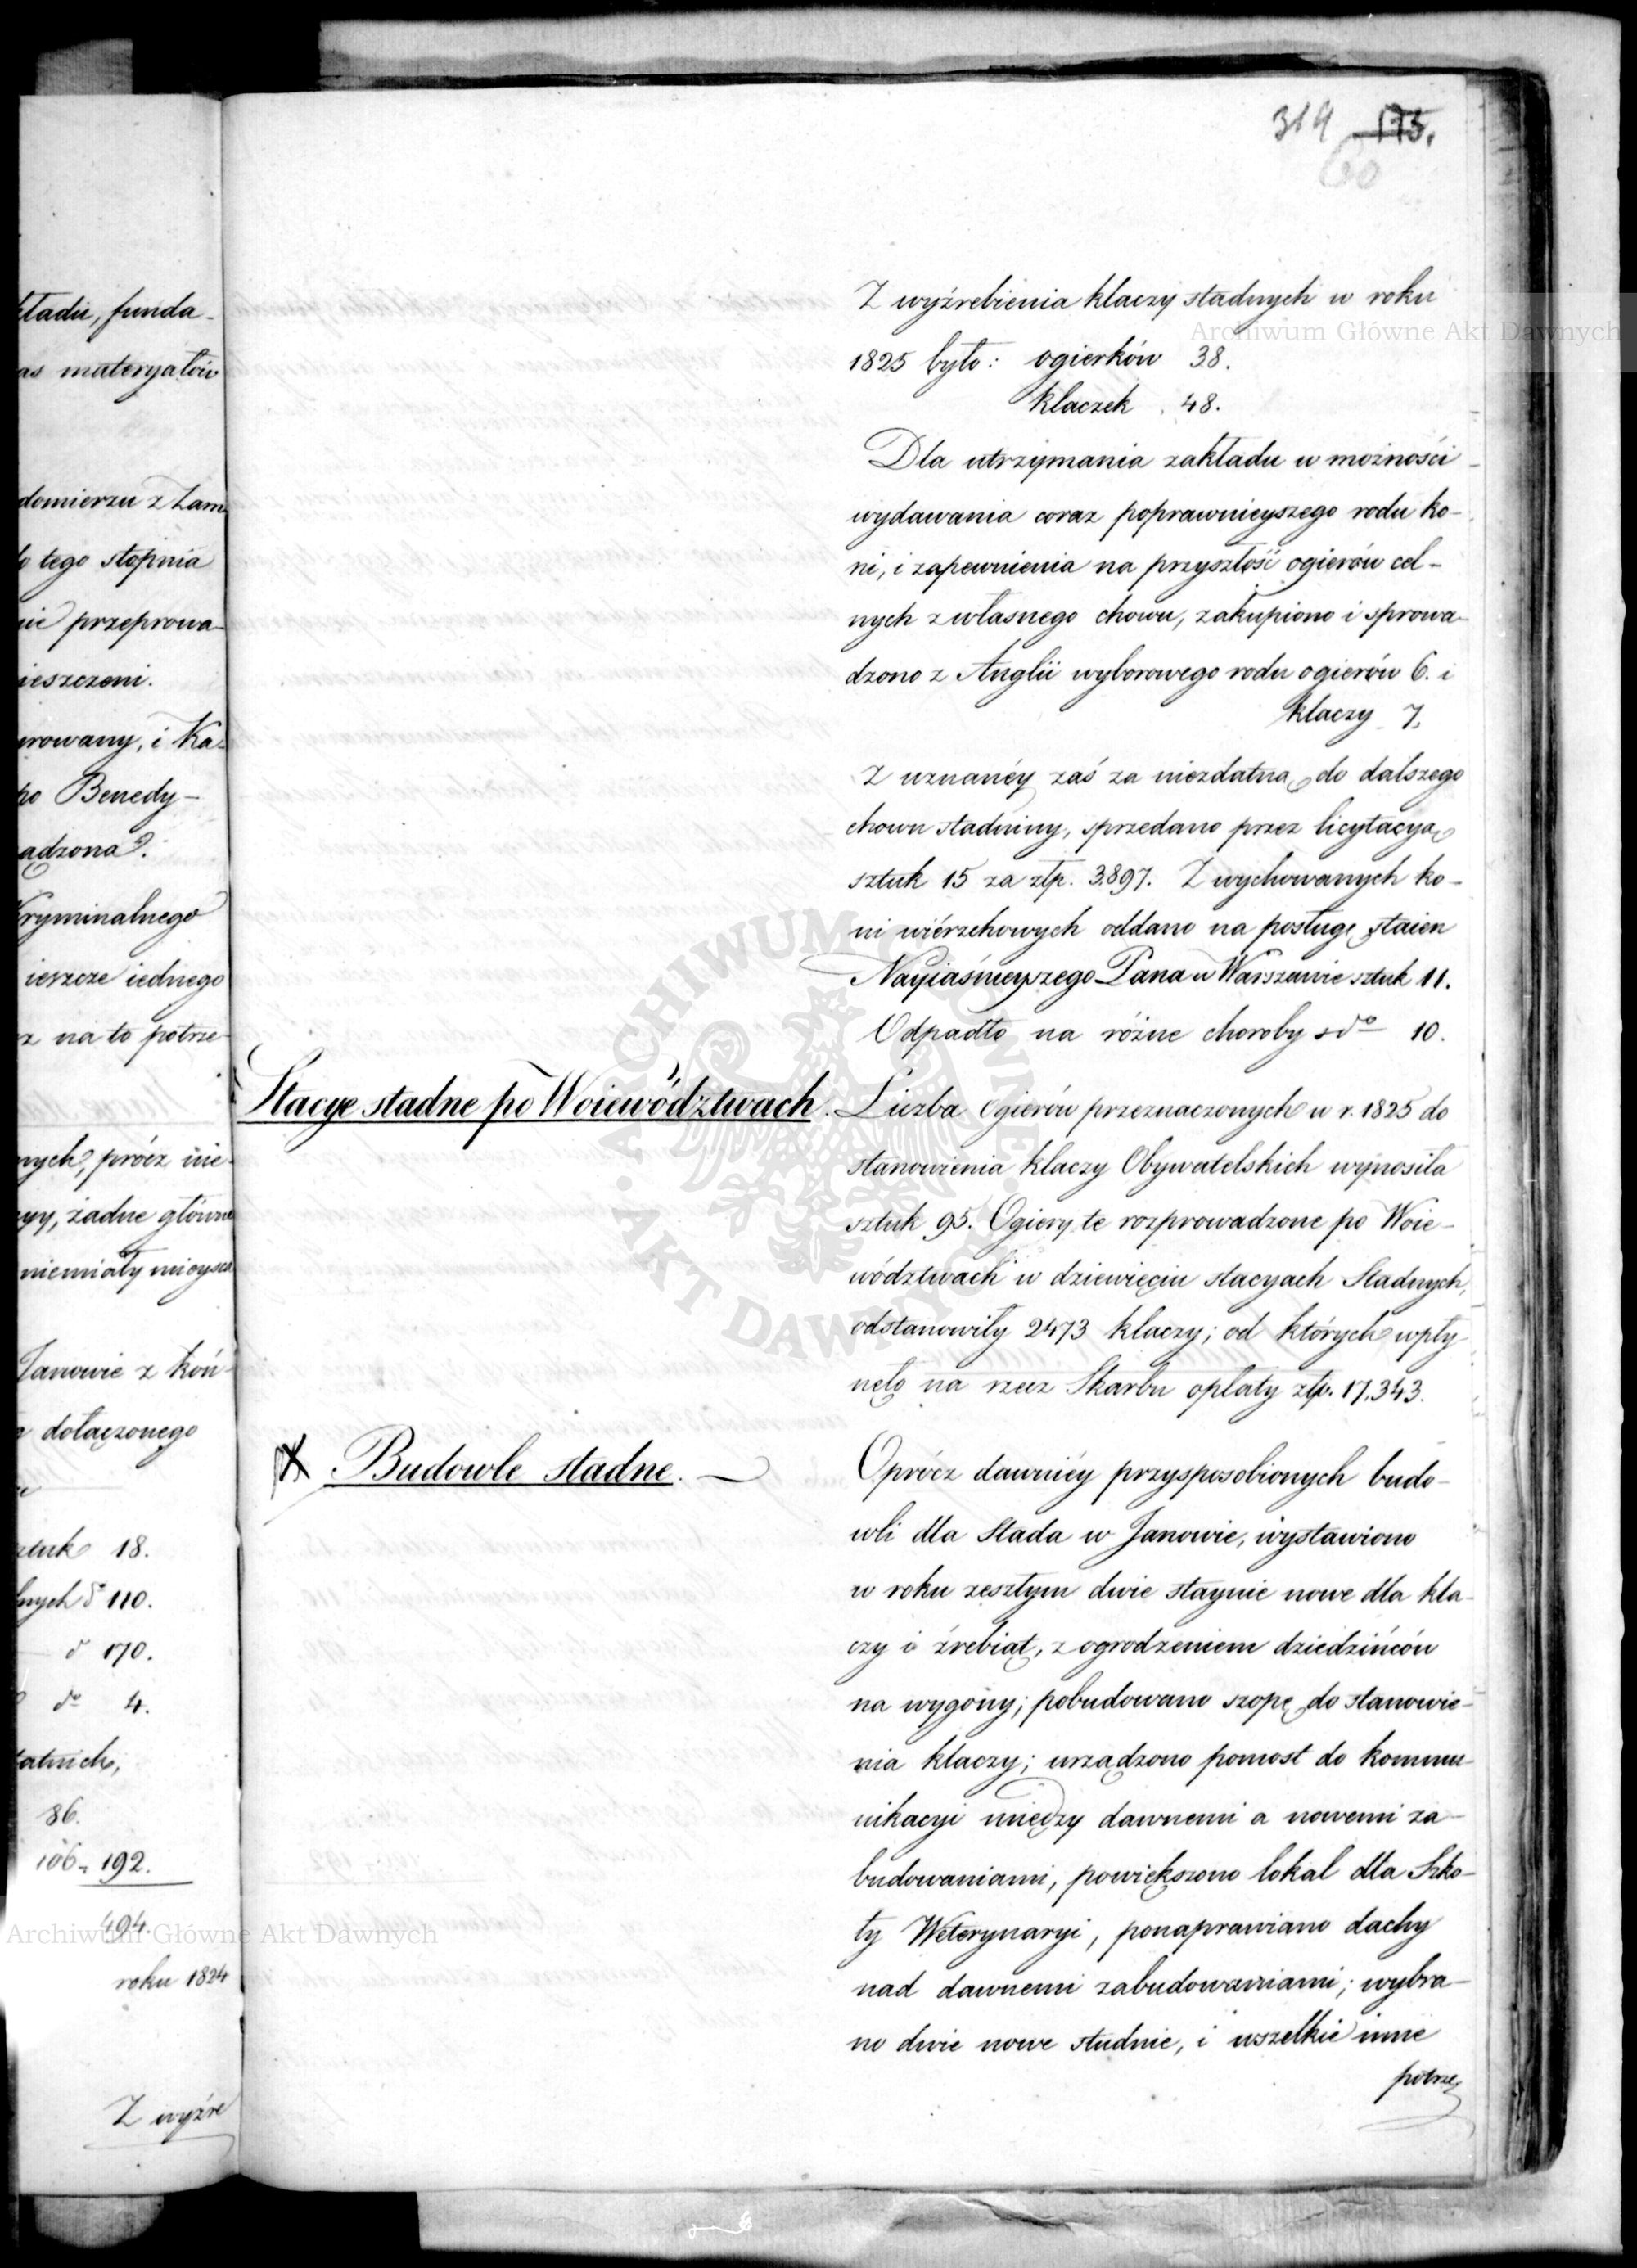 kładu, funda-
as materyałów
domierzu z Łam
o tego stopnia
nie przeprowa-
ieszczeni.
urowany, i Ka-
po Benedy-
adzona.
Kryminalnego
ieszcze iednego
z na to potrze-
nych, prócz nie-
yy, żadne główne
niemiały mieysca
Janowie z koń-
dołączonego
sztuk 18.
nych do 110.
do 170.
do 4.
tatnich,
86.
106. 192.
494.
roku 1824
Z wyźre
319 175.
60
Z wyźrebienia klaczy stadnych w roku
1825 było: ogierków 38.
klaczek 48.
Dla utrzymania zakładu w możności
wydawania coraz poprawnieyszego rodu ko-
ni, i zapewnienia na przyszłość ogierów cel-
nych z własnego chowu, zakupiono i sprowa-
dzono z Anglii wyborowego rodu ogierów 6. i
klaczy 7.
Z uznanéy zaś za niezdatną do dalszego
chowu stadniny, sprzedano przez licytacyą
sztuk 15 za złp. 3.897. Z wychowanych ko-
ni wiérzchowych oddano na posługę staien
Nayiaśnieyszego Pana w Warszawie sztuk 11.
Odpadło na różne choroby do 10.
Stacye stadne po Woiewództwach. Liczba Ogierów przeznaczonych w r. 1825 do
stanowienia klaczy Obywatelskich wynosiła
sztuk 95. Ogiery te rozprowadzone po Woie-
wództwach w dziewięciu stacyach Stadnych,
odstanowiły 2473 klaczy; od których wpły-
nęło na rzecz Skarbu opłaty złp. 17,343.
Budowle stadne. Oprócz dawniéy przysposobionych budo-
wli dla Stada w Janowie, wystawiono
w roku zeszłym dwie staynie nowe dla kla-
czy i źrebiąt, z ogrodzeniem dziedzińców
na wygony; pobudowano szopę do stanowie-
nia klaczy; urządzono pomost do kommu-
nikacyi między dawnemi a nowemi za-
budowaniami, powiększono lokal dla Szko-
ły Weterynaryi, ponaprawiano dachy
nad dawnemi zabudowaniami; wybra-
no dwie nowe studnie, i wszelkie inne
potrze
Archiwum Główne Akt Dawnych
Archiwum Główne Akt Dawnych
ARCHIWUM GŁÓWNE AKT DAWNYCH